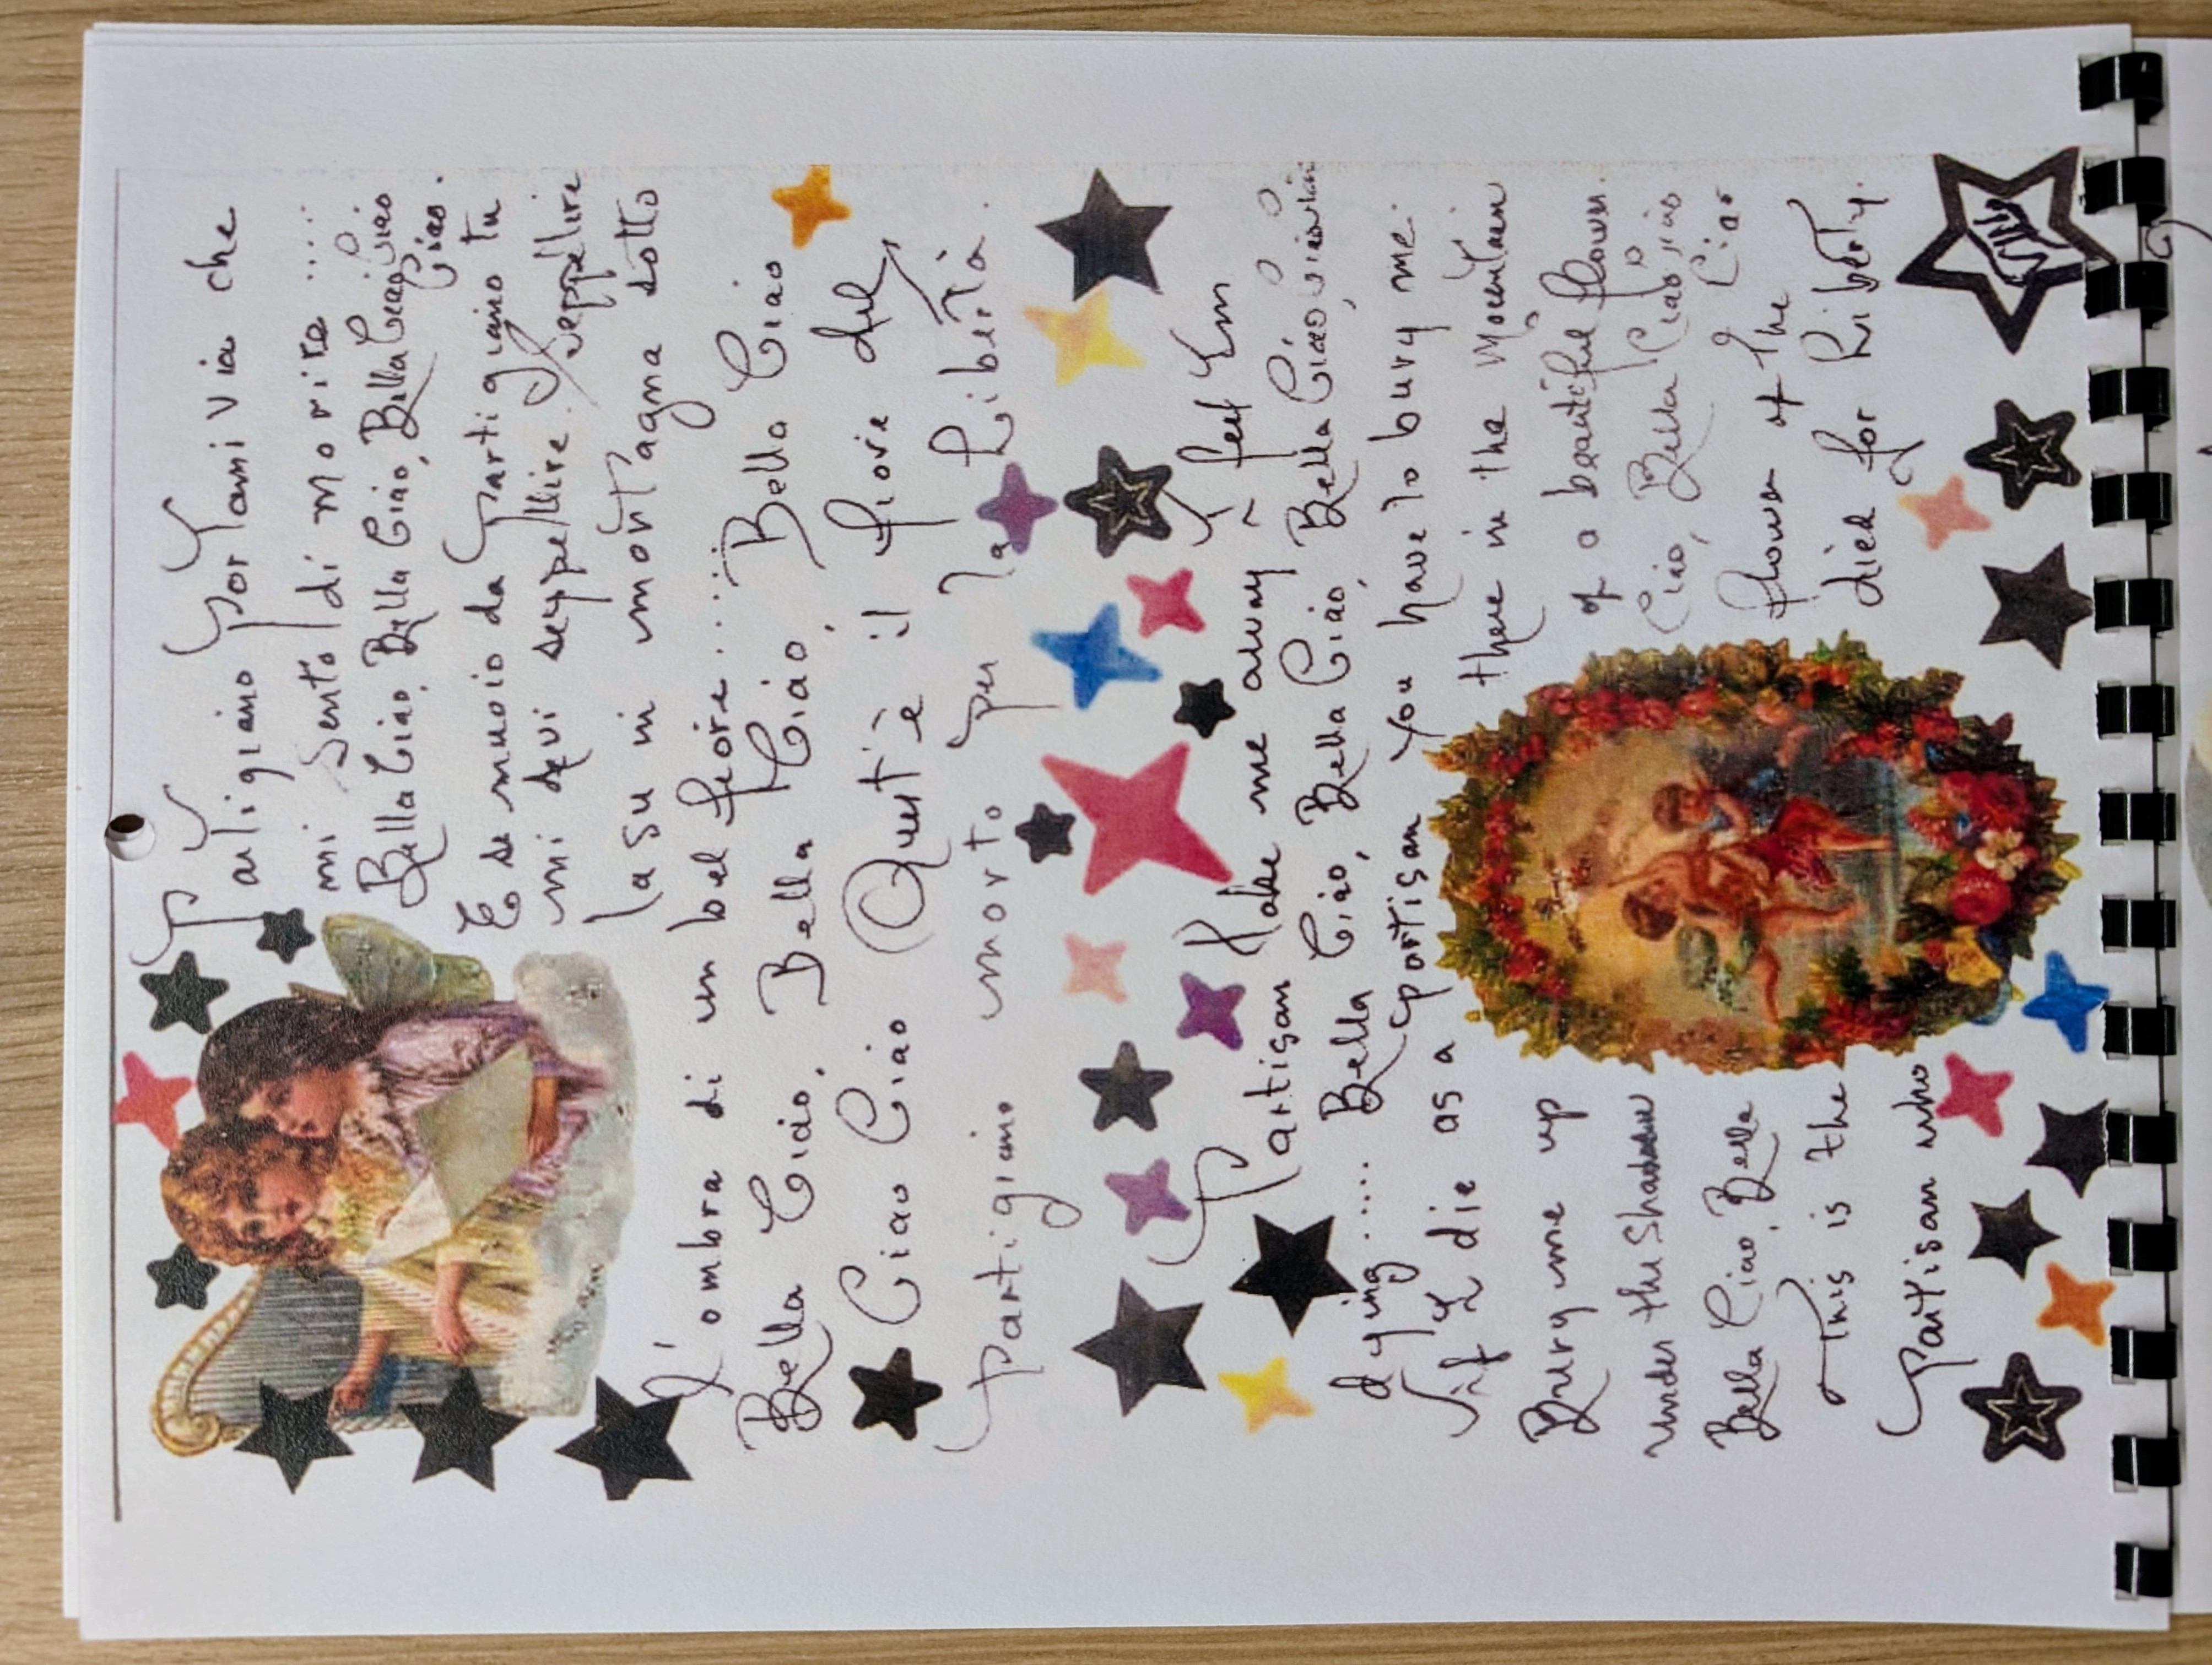 Partigiano portami via che
mi sento di morire.....
Bella Ciao, Bella Ciao, Bella Ciao Ciao Ciao.
E se muoio da Partigiano tu
mi devi seppellire. Seppellire
lasu in montagna sotto
l'ombra di un bel fiore.....
Bella Ciao, Bella Ciao, Bella Ciao
Ciao Ciao Quest'è il fiore del
partigiano morto per la Libertà.
Partisan take me away I feel I'm
dying..... Bella Ciao, Bella Ciao, Bella Ciao Ciao Ciao
If I die as a partisan you have to bury me.
Bury me up there in the mountain
under the shadow of a beautiful flower.
Bella Ciao, Bella Ciao, Bella Ciao Ciao Ciao
This is the flower of the
partisan who died for liberty.